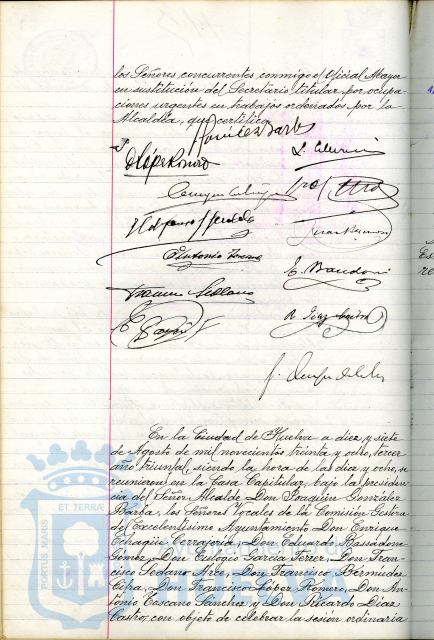 los Señores concurrentes conmigo el Oficial Mayor
en sustitución del Secretario titular por ocupa-
ciones urgentes en trabajos ordenados por la
Alcaldía, que certifico.
E. Bandoni
Francisco Sedano
En la Ciudad de Huelva a diez y siete
de Agosto de mil novecientos treinta y ocho, tercer
año triunfal, siendo la hora de las diez y ocho, se
reunieron en la Casa Capitular, bajo la presiden-
cia del Señor Alcalde Don Joaquín González
Barba, los Señores Vocales de la Comisión Gestora
del Excelentísimo Ayuntamiento Don Enrique
Echagüe Cerrajería, Don Eduardo Bassadone
Gómez, Don Eulogio García Ferrer, Don Fran-
cisco Sedano Arce, Don Francisco Bermúdez
Cipa, Don Francisco López Romero, Don An-
tonio Toscano Sánchez y Don Ricardo Díaz
Castro, con objeto de celebrar la sesión ordinaria
PORTUS MARIS
ET TERRAE